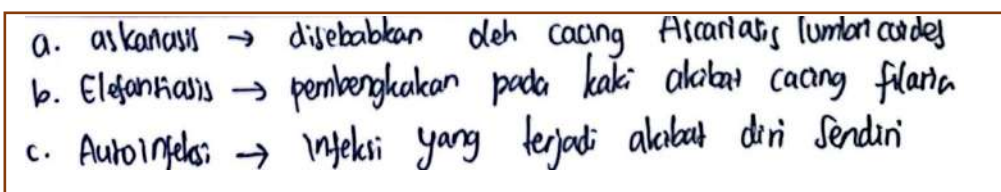 a. askariasis → disebabkan oleh cacing Ascariatis lumbricoides
b. Elefantiasis → pembengkakan pada kaki akibat cacing filaria
c. Autoinfeksi → infeksi yang terjadi akibat diri sendiri